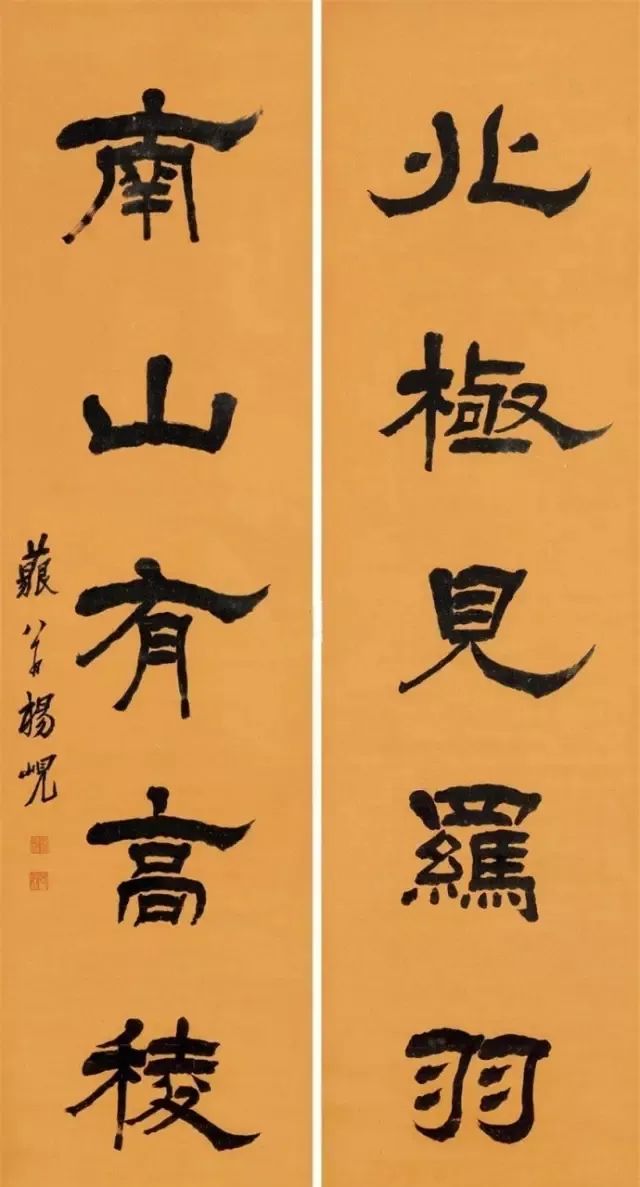 北極見羈羽
南山有高稜
藐翁楊峴